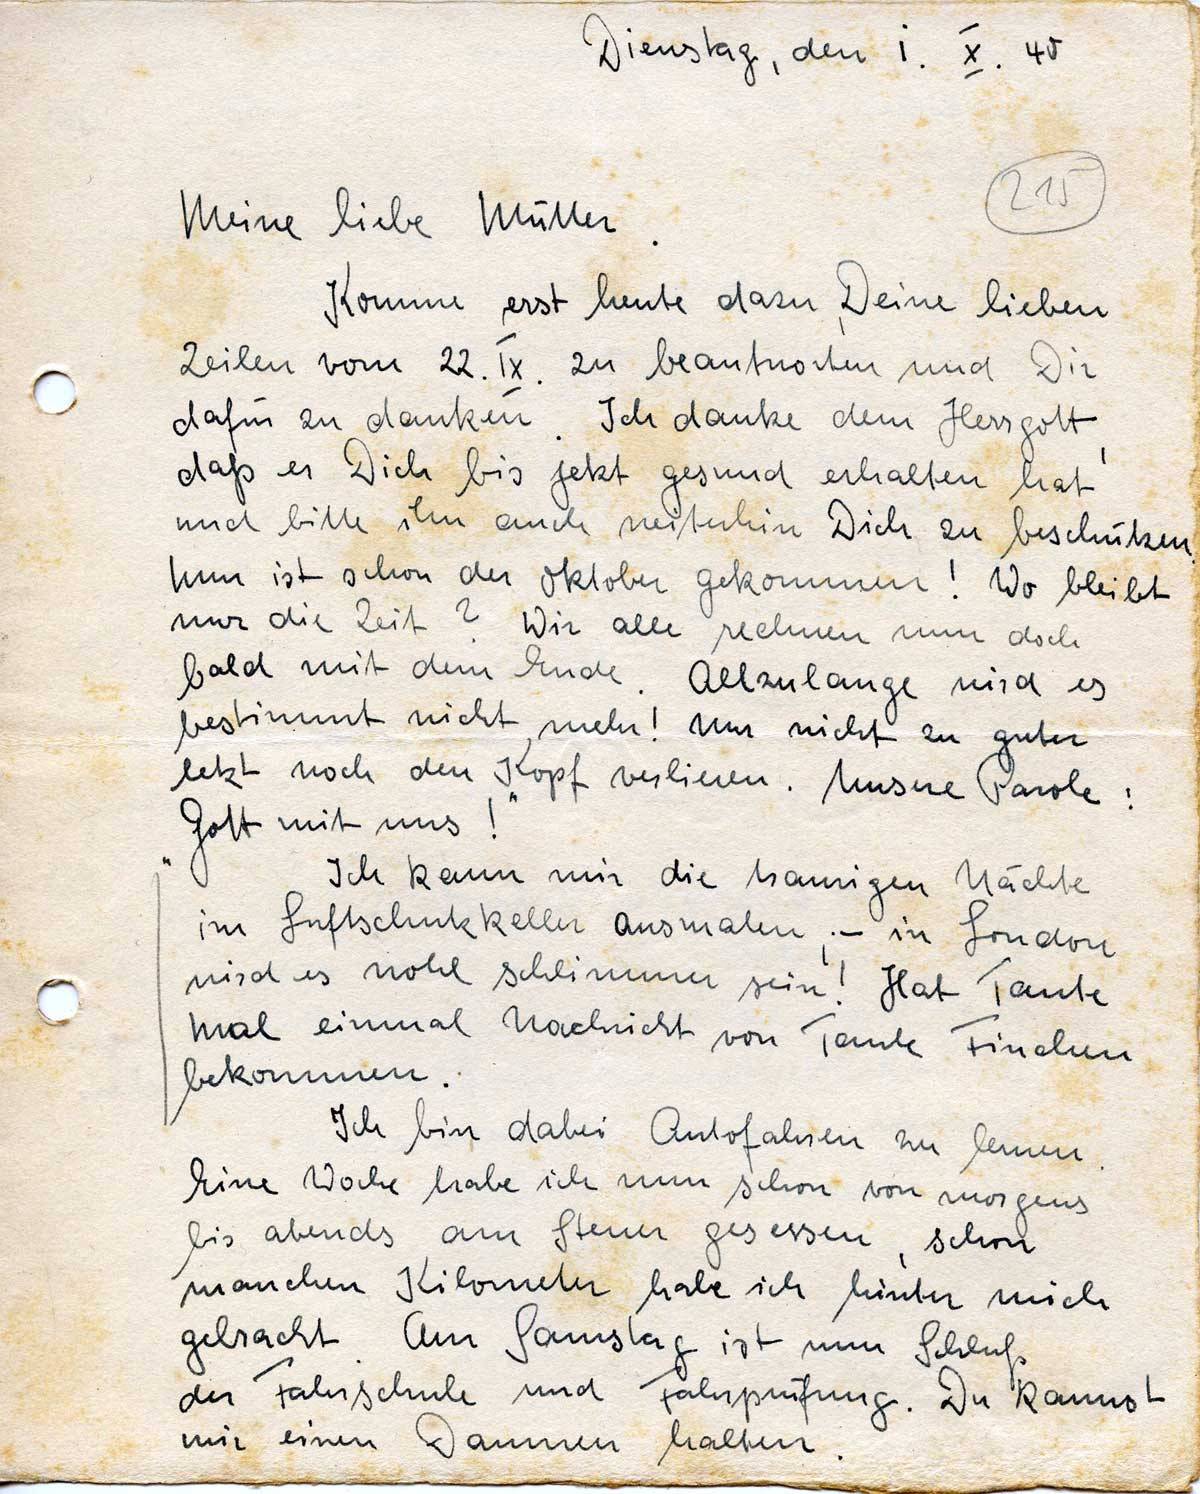 Dienstag, den 1. X. 40
215
Meine liebe Mutter.
Komme erst heute dazu, Deine lieben
Zeilen vom 22. IX. zu beantworten und Dir
dafür zu danken. Ich danke dem Herrgott,
daß er Dich bis jetzt gesund erhalten hat
und bitte ihn auch weiterhin Dich zu beschützen.
Nun ist schon der Oktober gekommen! Wo bleibt
nur die Zeit? Wir alle rechnen nun doch
bald mit dem Ende. Allzulange wird es
bestimmt nicht mehr! Nur nicht zu guter
letzt noch den Kopf verlieren. Unsere Parole:
„Gott mit uns!"
Ich kann mir die traurigen Nächte
im Luftschutzkeller ausmalen, - in London
wird es wohl schlimmer sein! Hat Tante
Mal einmal Nachricht von Tante Finchen
bekommen.
Ich bin dabei Autofahren zu lernen.
Eine Woche habe ich nun schon von morgens
bis abends am Steuer gesessen, schon
manchen Kilometer habe ich hinter mich
gebracht. Am Samstag ist nun Schluß
der Fahrschule und Fahrprüfung. Du kannst
mir einen Daumen halten.